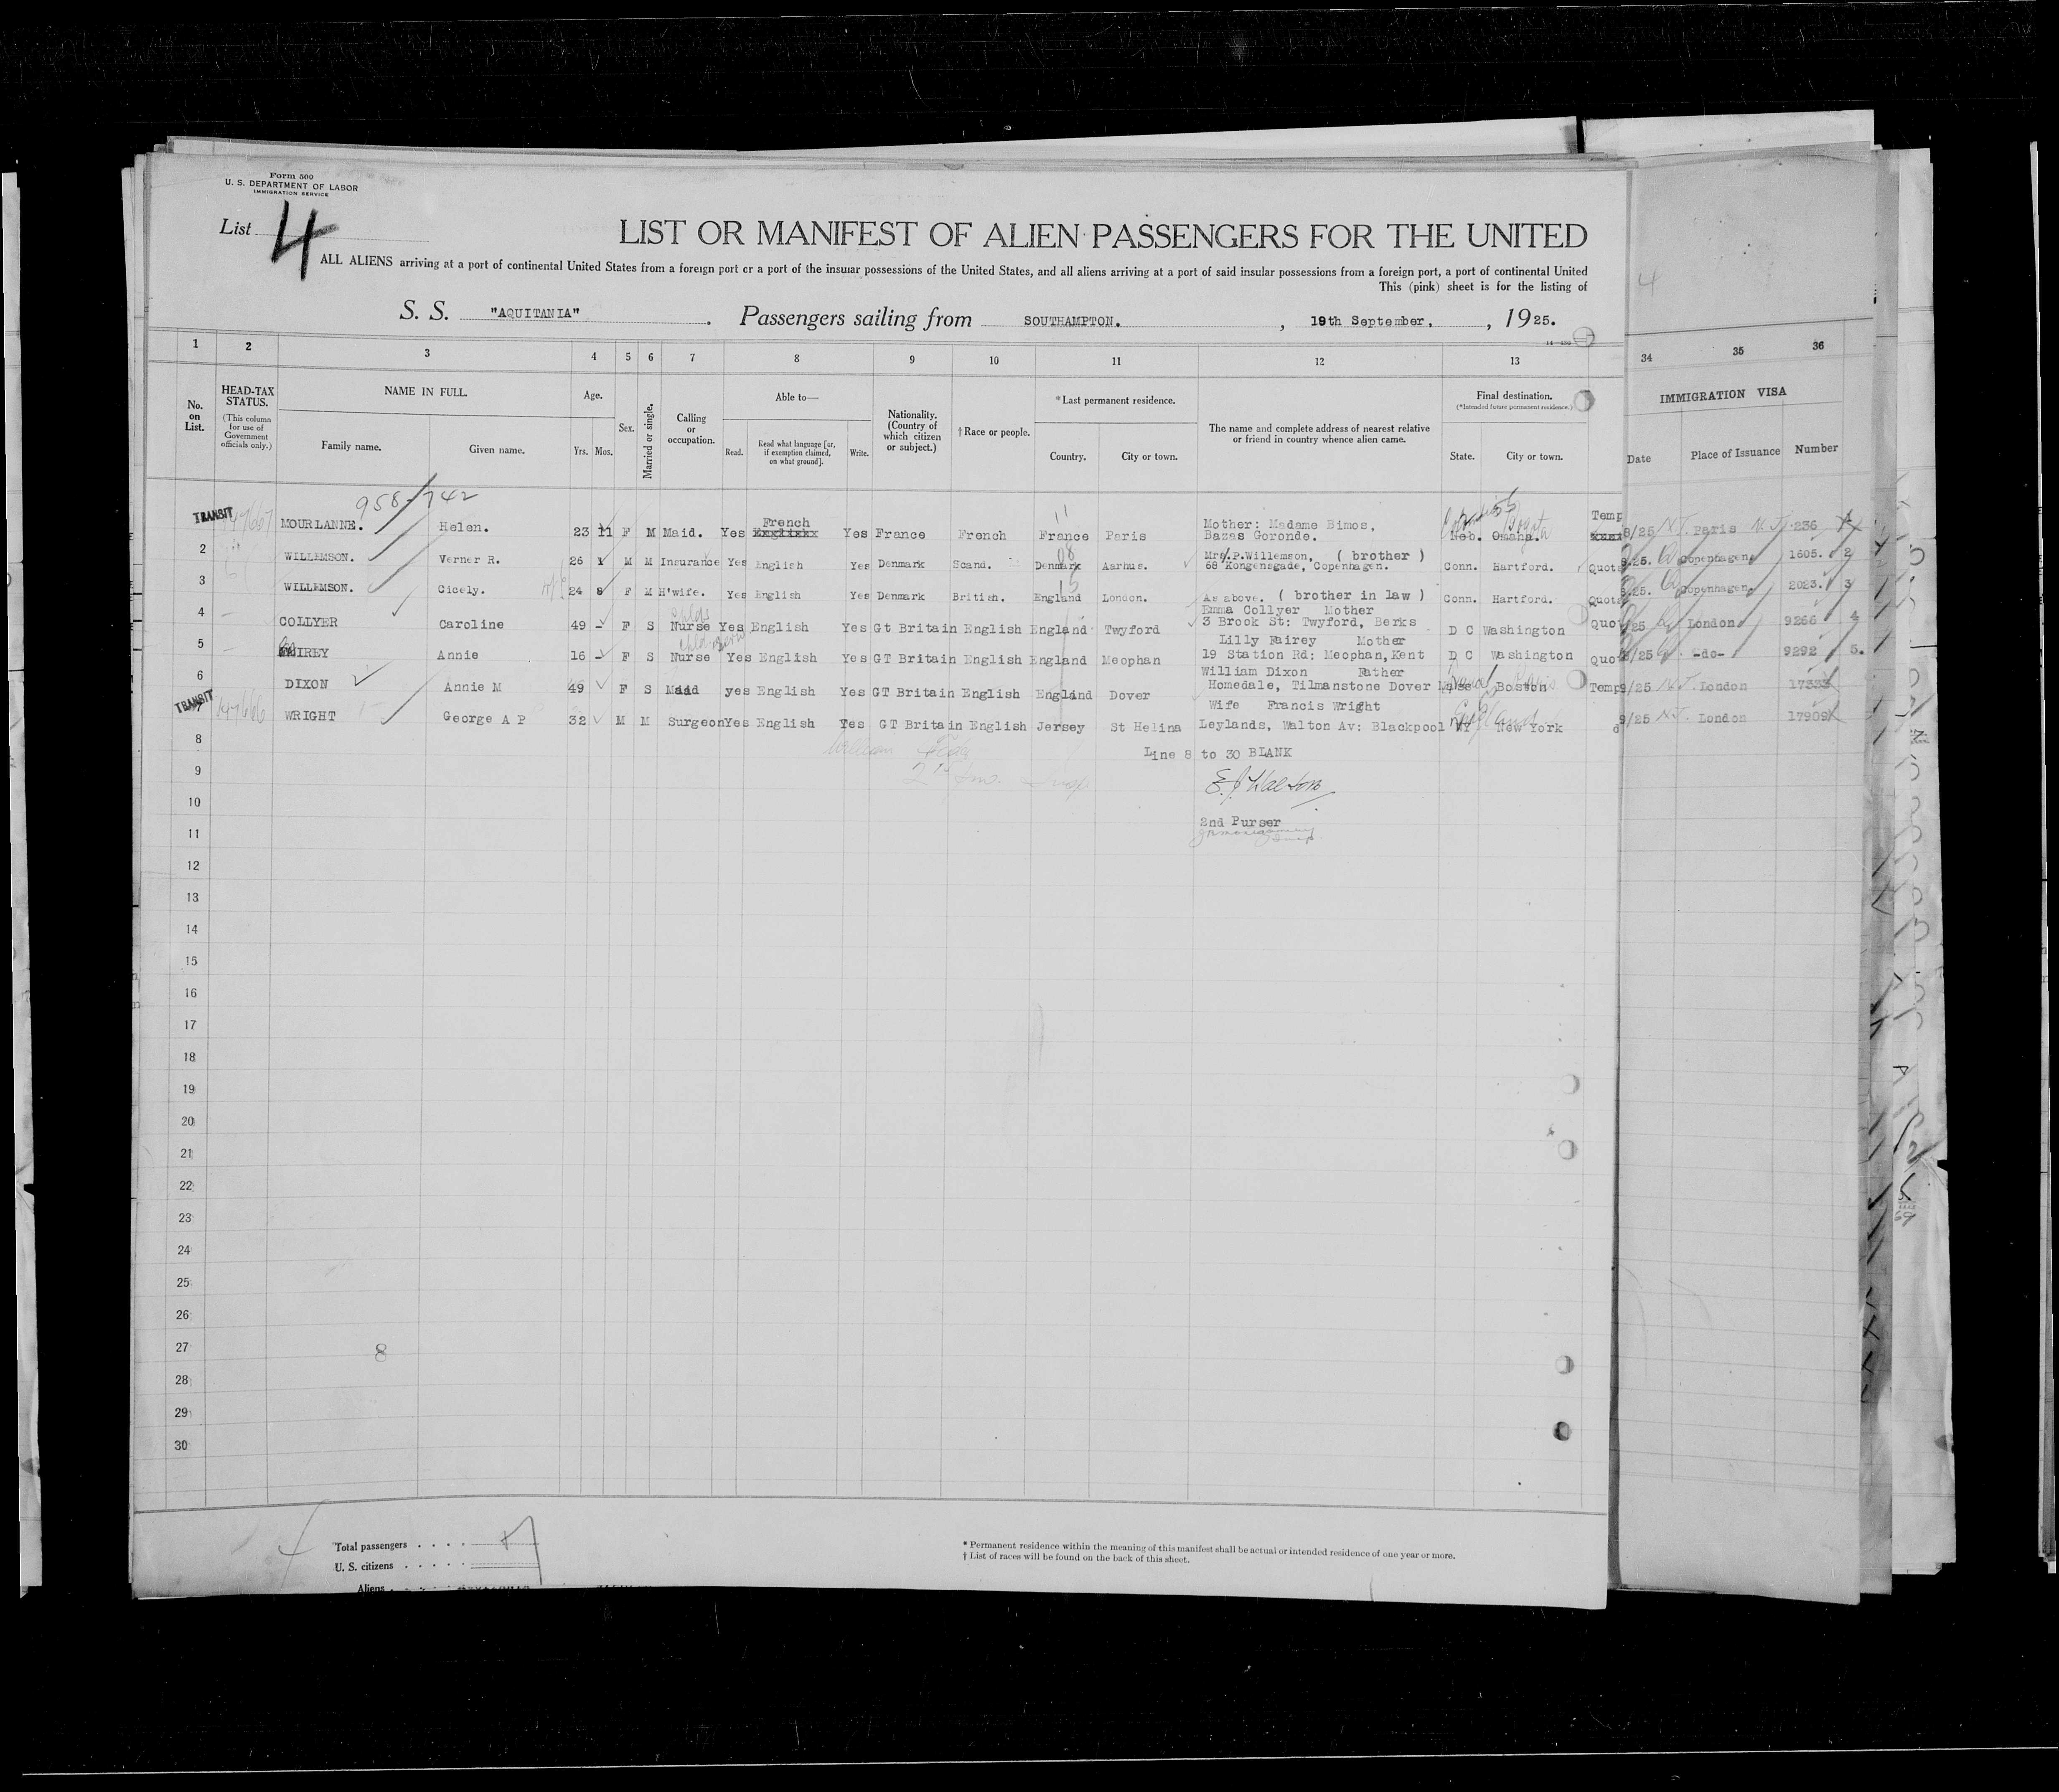 Form 500
U. S. DEPARTMENT OF LABOR
IMMIGRATION SERVICE
List 4
LIST OR MANIFEST OF ALIEN PASSENGERS FOR THE UNITED
ALL ALIENS arriving at a port of continental United States from a foreign port or a port of the insular possessions of the United States, and all aliens arriving at a port of said insular possessions from a foreign port, a port of continental United
This (pink) sheet is for the listing of
S. S. "AQUITANIA" . Passengers sailing from SOUTHAMPTON. , 19th September, , 1925.
1 2 3 4 5 6 7 8 9 10 11 12 13 34 35 36
No. on List.
HEAD-TAX STATUS.
(This column for use of Government officials only.)
NAME IN FULL.
Family name. Given name.
Age.
Yrs. Mos.
Sex.
Married or single.
Calling or occupation.
Able to—
Read. Read what language [or, if exemption claimed, on what ground]. Write.
Nationality. (Country of which citizen or subject.)
†Race or people.
*Last permanent residence.
Country. City or town.
The name and complete address of nearest relative or friend in country whence alien came.
Final destination.
(*Intended future permanent residence.)
State. City or town.
IMMIGRATION VISA
Date Place of Issuance Number
958/742
TRANSIT MOURLANNE. Helen. 23 11 F M Maid. Yes French Yes France French France Paris Mother: Madame Bimos, Bazas Goronde. Neb. Omaha. Temp 8/25 Paris 236
2 WILLEMSON. Verner R. 26 1 M M Insurance Yes English Yes Denmark Scand. Denmark Aarhus. Mrs.P.Willemson, ( brother ) 68 Kongensgade, Copenhagen. Conn. Hartford. Quota .25. Copenhagen. 1605. 2
3 WILLEMSON. Cicely. 24 8 F M H'wife. Yes English Yes Denmark British. England London. As above. ( brother in law ) Conn. Hartford. Quota .25. Copenhagen. 2023. 3
4 COLLYER Caroline 49 - F S Nurse Yes English Yes Gt Britain English England Twyford Emma Collyer Mother 3 Brook St: Twyford, Berks D C Washington Quot /25 London 9266 4
5 FAIREY Annie 16 - F S Nurse Yes English Yes GT Britain English England Meophan Lilly Fairey Mother 19 Station Rd: Meophan, Kent D C Washington Quot 8/25 -do- 9292 5.
6 DIXON Annie M 49 F S Maid yes English Yes GT Britain English England Dover William Dixon Father Homedale, Tilmanstone Dover Boston Temp 9/25 London 17333
TRANSIT WRIGHT George A P 32 M M Surgeon Yes English Yes GT Britain English Jersey St Helina Wife Francis Wright Leylands, Walton Av: Blackpool NY New York 9/25 London 17909
8
Line 8 to 30 BLANK
9
10
2nd Purser
11
12
13
14
15
16
17
18
19
20
21
22
23
24
25
26
27
8
28
29
30
Total passengers . . . .
U. S. citizens . . . . .
Aliens
* Permanent residence within the meaning of this manifest shall be actual or intended residence of one year or more.
† List of races will be found on the back of this sheet.